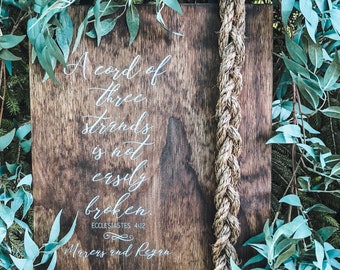 A cord of
three
strands
is not
easily
broken.
ECCLESIASTES 4:12
Marcus and Regan